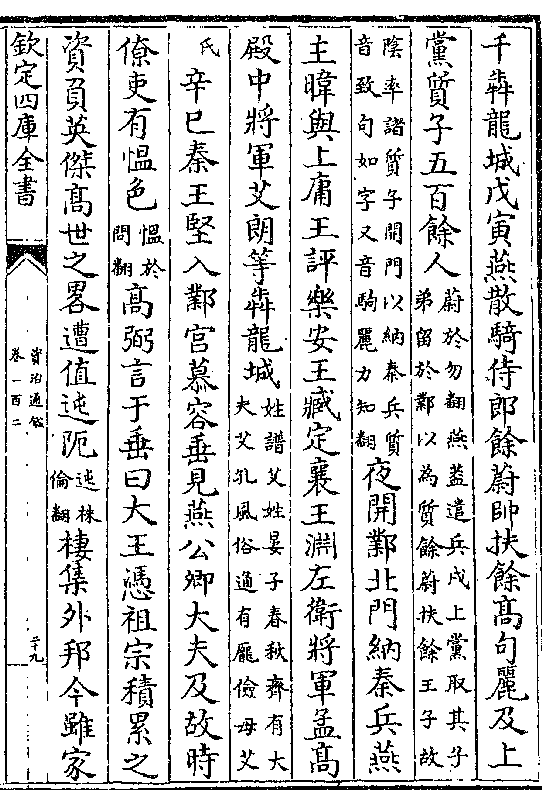 千犇龍城戊寅燕散騎侍郎餘蔚帥扶餘高句麗及上
黨質子五百餘人蔚於勿翻燕蓋遣兵戍上黨取其子
弟留於鄴以為質餘蔚扶餘王子故
陰率諸質子開門以納秦兵質
音致句如字又音駒麗力知翻夜開鄴北門納秦兵燕
主暐與上庸王評樂安王臧定襄王淵左衛將軍孟高
殿中將軍艾朗等犇龍城姓譜艾姓晏子春秋齊有大
夫艾孔風俗通有龐儉母艾
氏辛巳秦王堅入鄴宫慕容垂見燕公卿大夫及故時
僚吏有愠色愠於
問翻高弼言于垂曰大王憑祖宗積累之
資負英傑高世之畧遭值迍阨迍株
倫翻棲集外邦今雖家
欽定四庫全書
資治通鑑
卷一百二
二十九